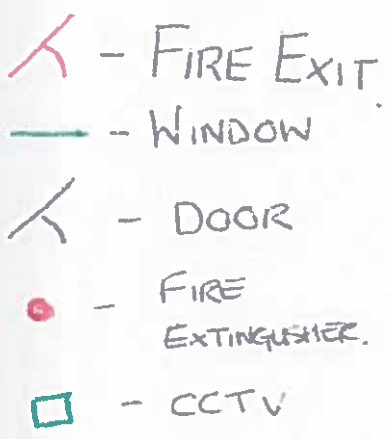 - FIRE EXIT.
- WINDOW
- DOOR
- FIRE
EXTINGUSHER.
- CCTV